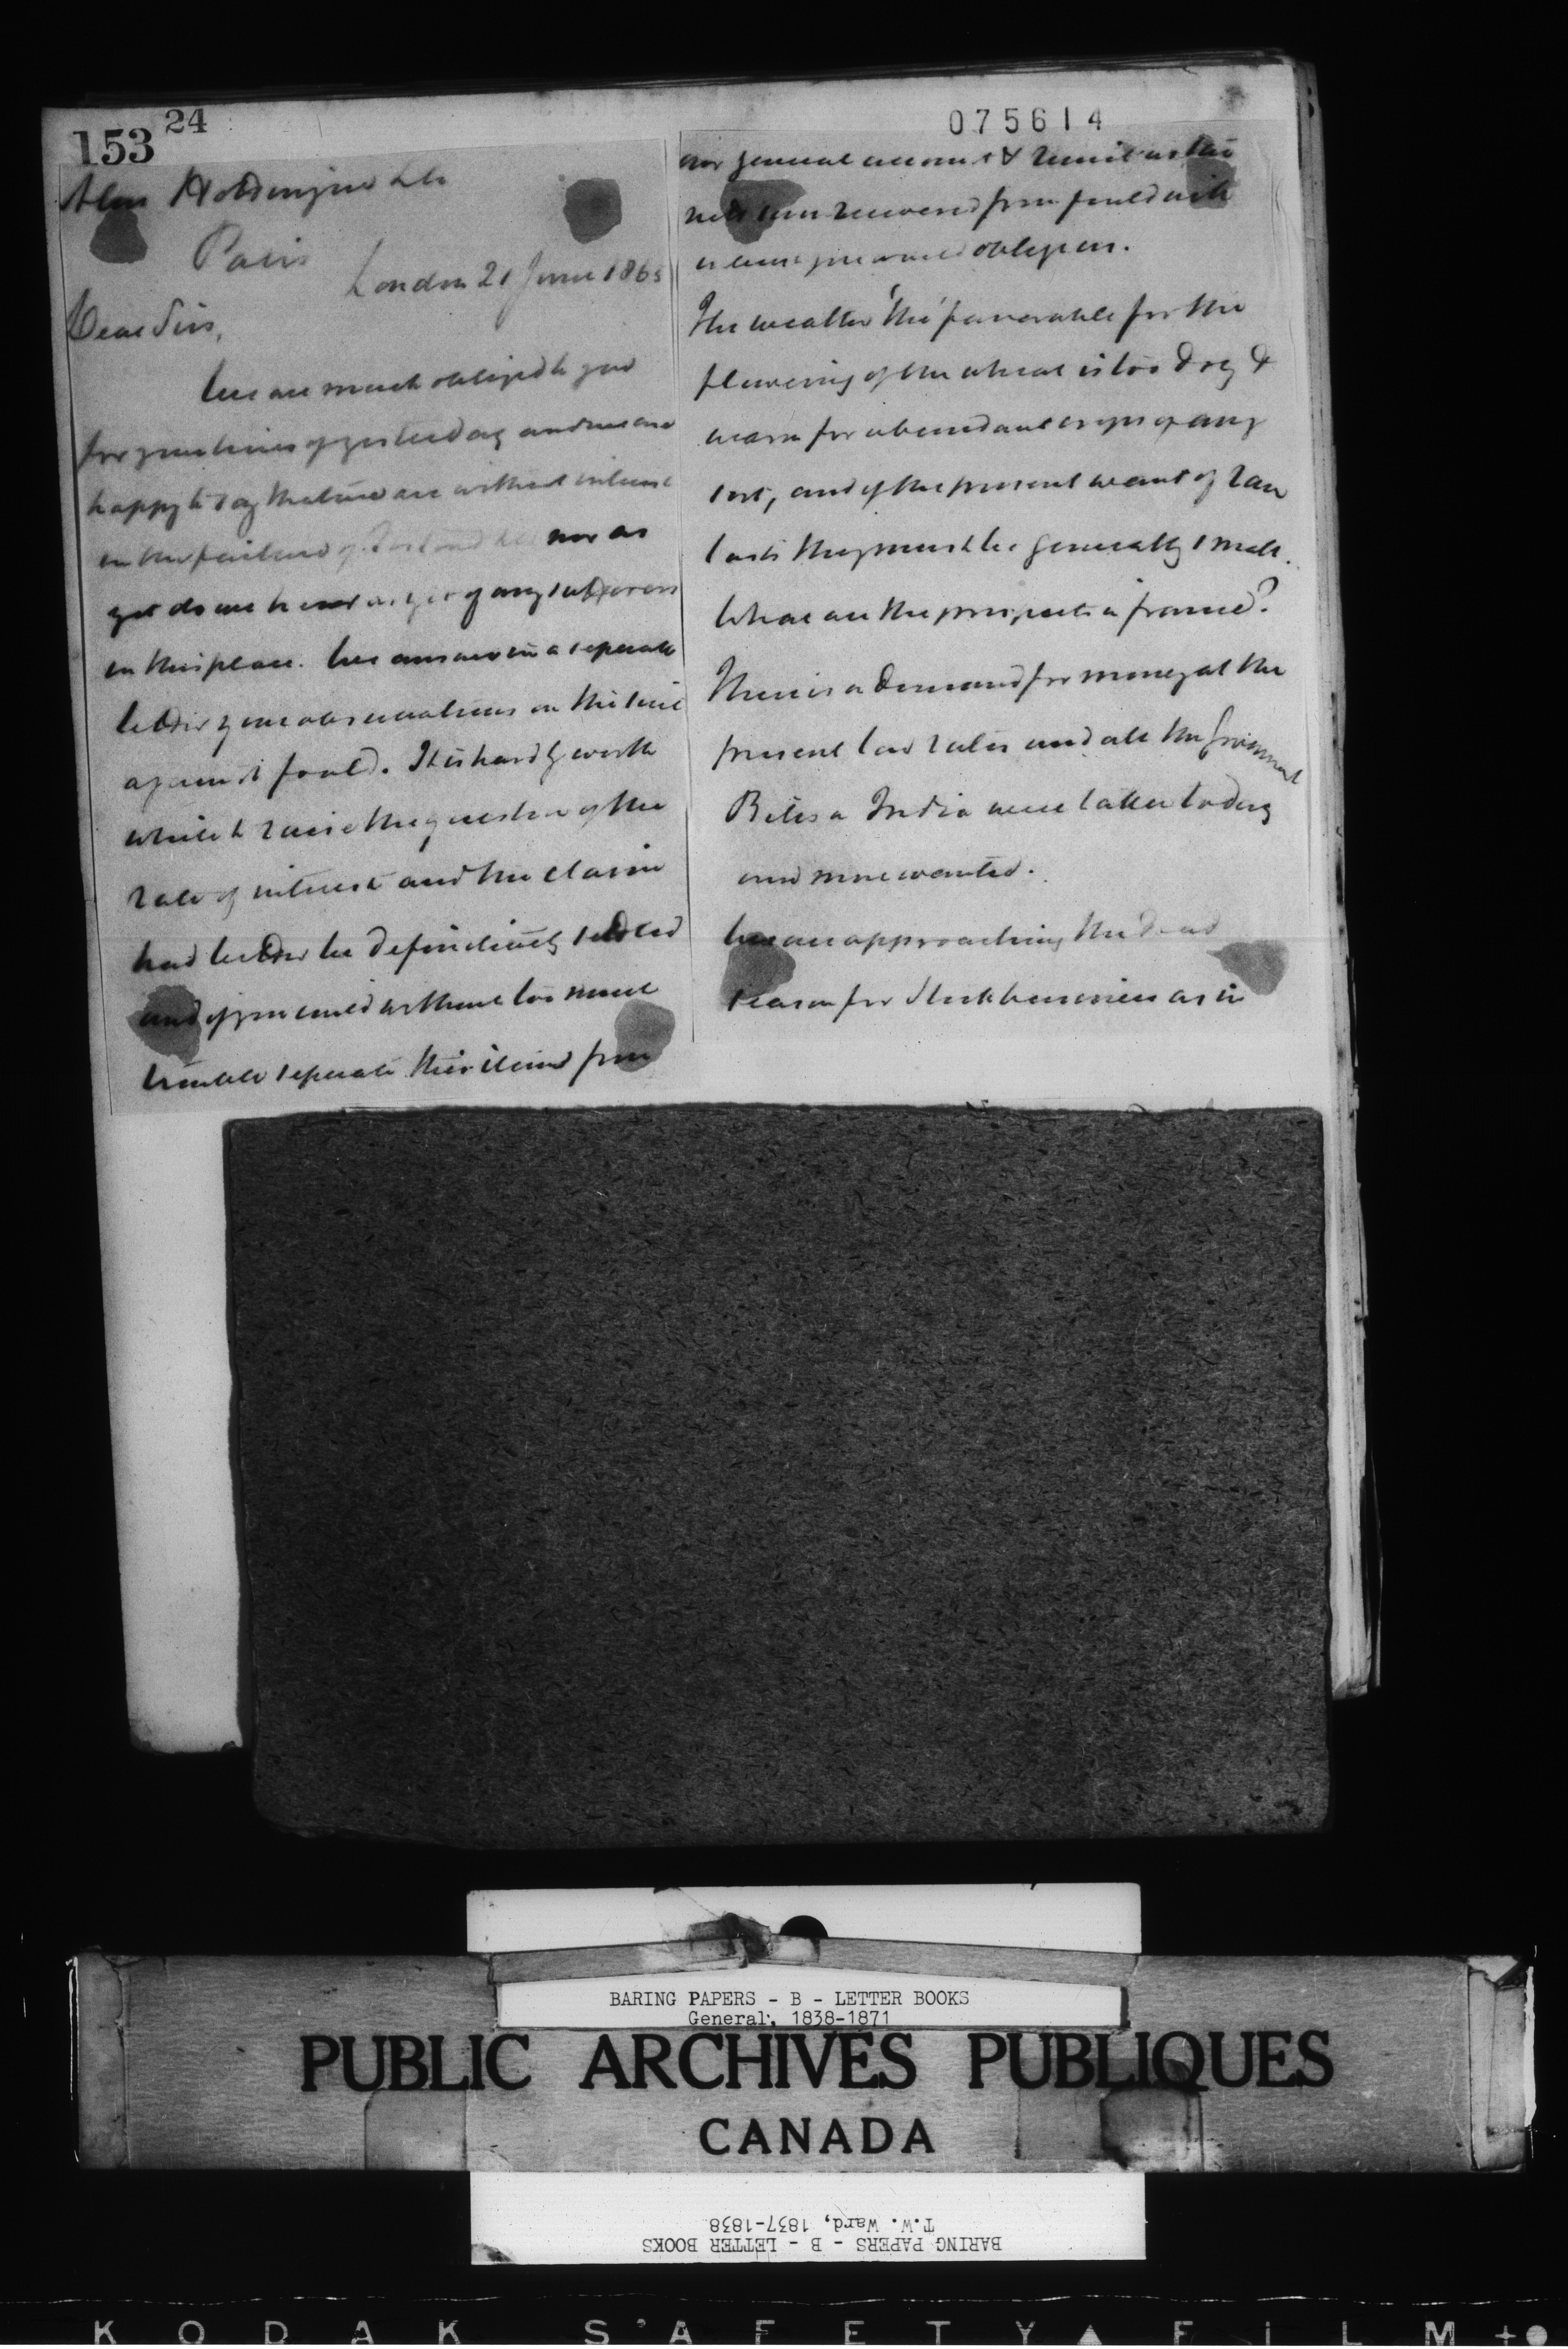 153 24
075614
Hottinguer & Co
Paris
London 21 June 1865
Dear Sirs,
We are much obliged to you
for your lines of yesterday and we are
happy to say that we are without interest
in the failure of nor as
yet do we hear as yet of any sufferers
in this place. We answer in a separate
letter your observations on the suit
against Fould. It is hardly worth
while to raise the question of the
rate of interest and the claim
had better be definitively settled
and if you could without too much
trouble separate this item from
our general account & remit us the
net sum recovered from Fould with
you would oblige us.
The weather tho' favorable for the
flowering of the wheat is too dry &
warm for abundant crops of any
sort, and if the present want of rain
lasts they must be generally small.
What are the prospects in France?
There is a demand for money at the
present low rates and all the Government
Bills on India were taken today
and more wanted.
We are approaching the dead
season for Stock business as in
BARING PAPERS - B - LETTER BOOKS
General, 1838-1871
PUBLIC ARCHIVES PUBLIQUES
CANADA
BARING PAPERS - B - LETTER BOOKS
T.W. Ward, 1837-1838
KODAK SAFETY FILM